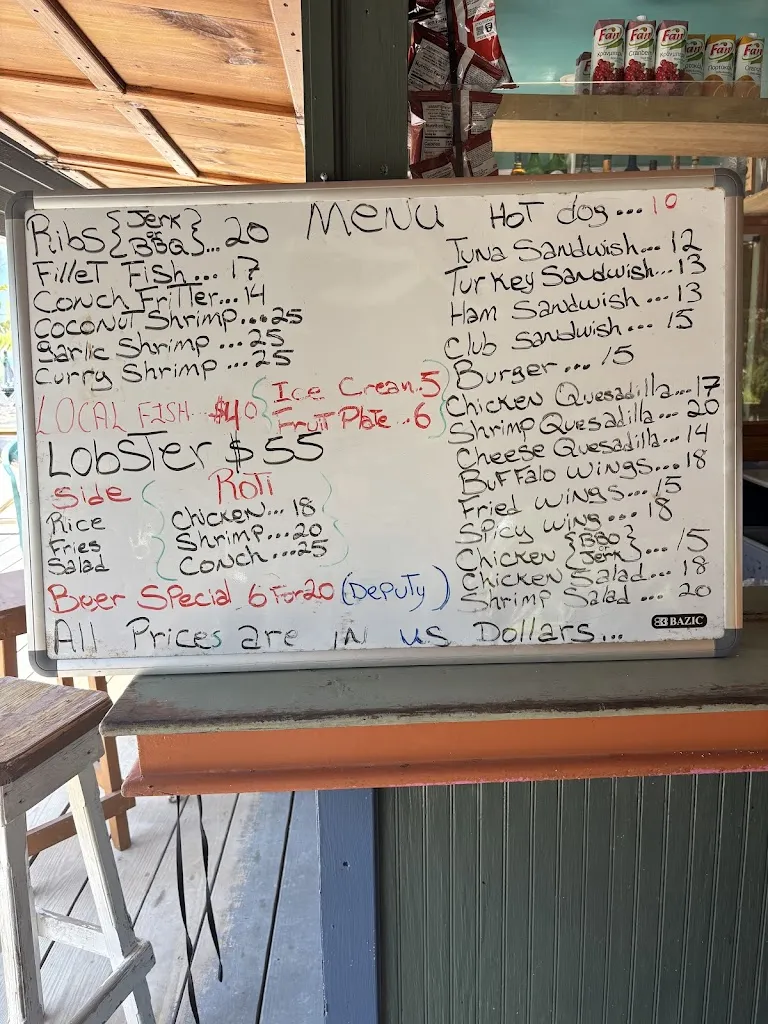 Menu
Ribs {Jerk or BBQ}... 20
Fillet Fish... 17
Conch Fritter... 14
Coconut Shrimp... 25
Garlic Shrimp... 25
Curry Shrimp... 25
LOCAL FISH $40
Ice Crean. 5
Fruit Plate.. 6
Lobster $55
Side
Rice
Fries
Salad
Roti
Chicken... 18
Shrimp... 20
Conch.... 25
Hot dog... 10
Tuna Sandwish... 12
Turkey Sandwish... 13
Ham Sandwish... 13
Club Sandwish... 15
Burger... 15
Chicken Quesadilla... 17
Shrimp Quesadilla... 20
Cheese Quesadilla... 14
Buffalo wings... 18
Fried wings... 15
Spicy wing... 18
Chicken {BBQ or Jerk}... 15
Chicken Salad... 18
Shrimp Salad... 20
Beer Special 6 For 20 (Deputy)
All Prices are in US Dollars...
BAZIC
Fan
Fan
Fan